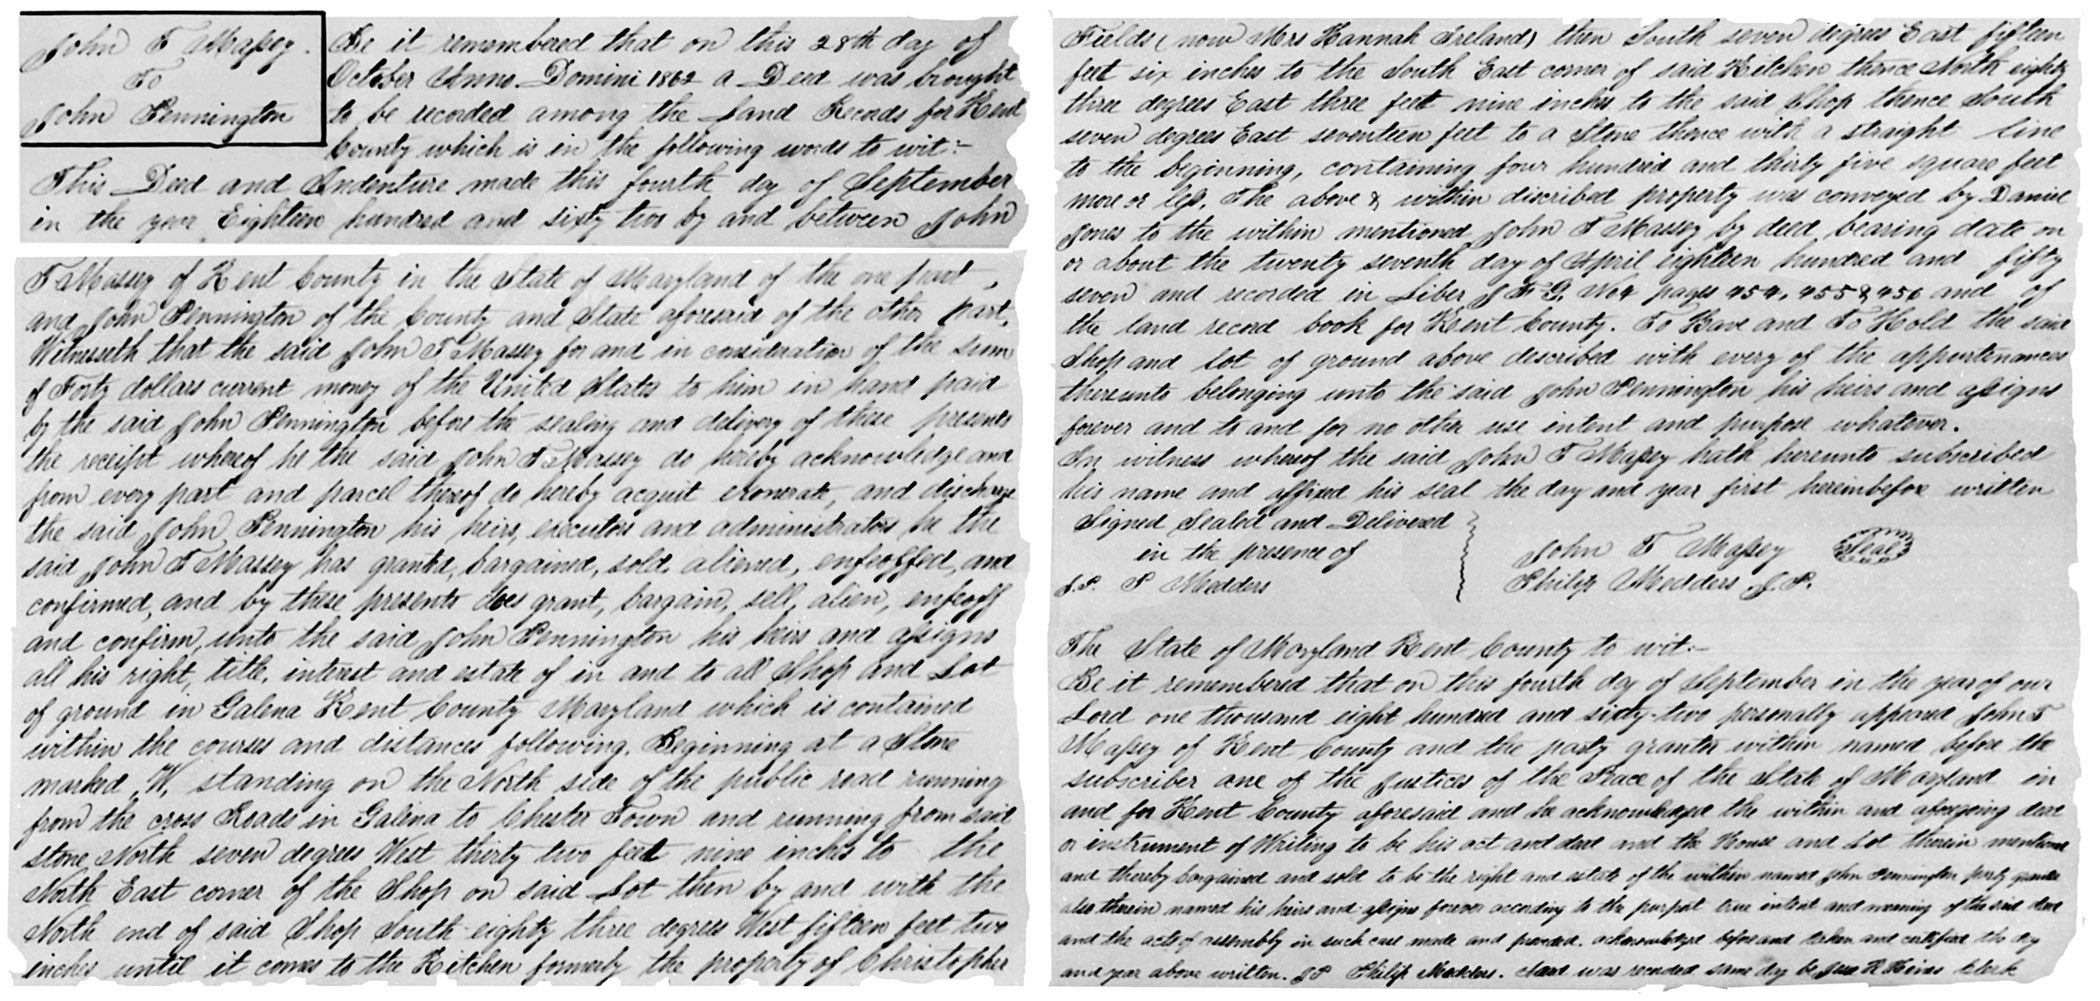 John T Massey.
To
John Pennington
Be it remembered that on this 28th day of
October Anno Domini 1862 a Deed was brought
to be recorded among the Land Records for Kent
County which is in the following words to wit:-
This Deed and Indenture made this fourth day of September
in the year Eighteen hundred and sixty two by and between John
T Massey of Kent County in the State of Maryland of the one part,
and John Pennington of the County and State aforesaid of the other part,
Witnesseth that the said John T Massey for and in consideration of the sum
of Forty dollars current money of the United States to him in hand paid
by the said John Pennington before the sealing and delivery of these presents
the receipt whereof he the said John T Massey do hereby acknowledge and
from every part and parcel thereof do hereby acquit exonerate, and discharge
the said John Pennington his heirs, executors and administrators he the
said John T Massey has granted, bargained, sold, aliened, enfeoffed, and
confirmed, and by these presents does grant, bargain, sell, alien, enfeoff
and confirm, unto the said John Pennington his heirs and assigns
all his right, title, interest and estate of in and to all Shop and Lot
of ground in Galena Kent County Maryland which is contained
within the courses and distances following. Beginning at a Stone
marked W, standing on the North side of the public road running
from the cross Roads in Galena to Chester Town and running from said
stone North seven degrees West thirty two feet nine inches to the
North East corner of the Shop on said Lot then by and with the
North end of said Shop South eighty three degrees West fifteen feet two
inches until it comes to the Kitchen formerly the property of Christopher
Fields (now Mrs Hannah Ireland) then South seven degrees East fifteen
feet six inches to the South East corner of said Kitchen thence North eighty
three degrees East three feet nine inches to the said Shop thence South
seven degrees East seventeen feet to a Stone thence with a straight line
to the beginning, containing four hundred and thirty five square feet
more or less. The above & within discribed property was conveyed by Daniel
Jones to the within mentioned John T Massey by deed bearing date on
or about the twenty seventh day of April eighteen hundred and fifty
seven and recorded in Liber J F G. No 4 pages 454, 455 & 456 and of
the land record book for Kent County. To Have and To Hold the said
Shop and lot of ground above described with every of the appurtenances
thereunto belonging unto the said John Pennington his heirs and assigns
forever and to and for no other use intent and purpose whatever.
In witness whereof the said John T Massey hath hereunto subscribed
his name and affixed his seal the day and year first hereinbefore written
Signed Sealed and Delivered
in the presence of
J.P. P Medders
John T Massey Seal
Philip Medders J.P.
The State of Maryland Kent County to wit:-
Be it remembered that on this fourth day of September in the year of our
Lord one thousand eight hundred and sixty-two personally appeared John T
Massey of Kent County and the party grantor within named before the
subscriber one of the Justices of the Peace of the State of Maryland in
and for Kent County aforesaid and he acknowledged the within and aforegoing deed
or instrument of Writing to be his act and deed and the House and Lot therein mentioned
and thereby bargained and sold to be the right and estate of the within named John Pennington party grantee
also therein named his heirs and assigns forever according to the purport true intent and meaning of the said deed
and the acts of assembly in such case made and provided. acknowledged before and taken and certified the day
and year above written. JP Philip Medders. and was recorded same day by Clerk